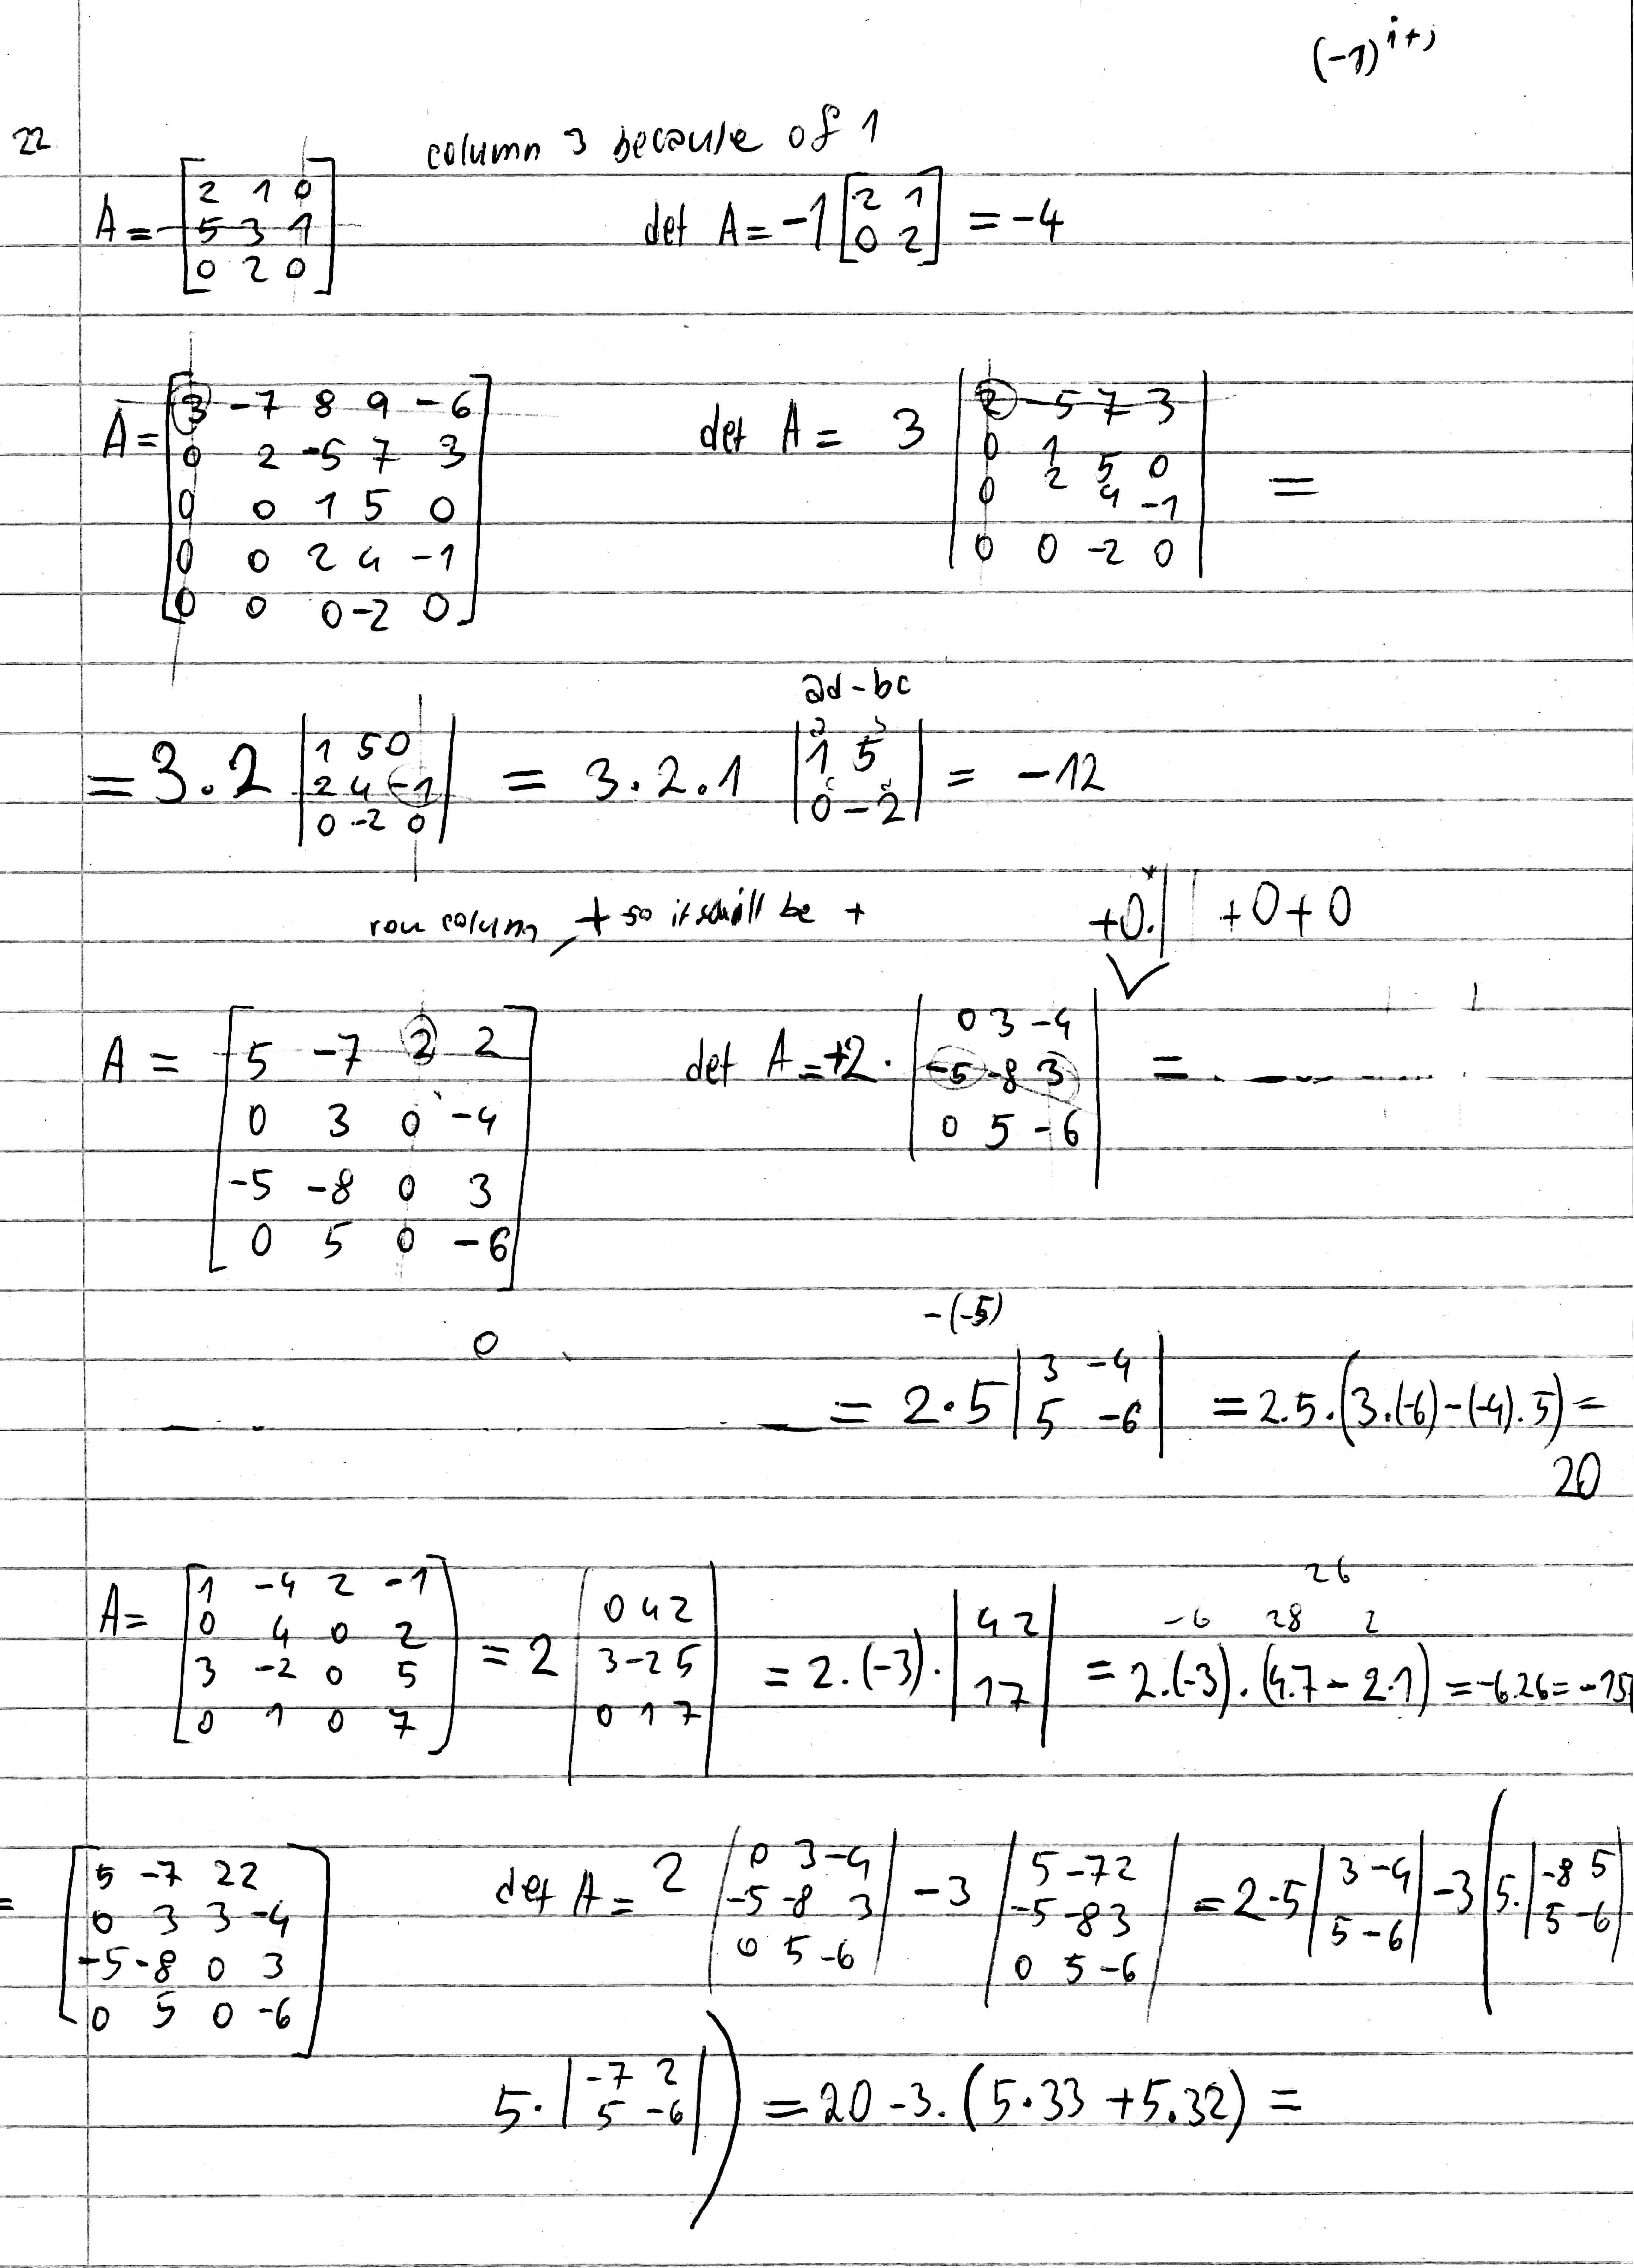 (-1)^{i+j}
22
column 3 because of 1
A = [2 1 0; 5 3 1; 0 2 0] det A = -1 [2 1; 0 2] = -4
A = [3 -7 8 9 -6; 0 2 -5 7 3; 0 0 1 5 0; 0 0 2 4 -1; 0 0 0 -2 0] det A = 3 |2 -5 7 3; 0 1 5 0; 0 2 4 -1; 0 0 -2 0| =
ad - bc
= 3 . 2 |1 5 0; 2 4 -1; 0 -2 0| = 3 . 2 . 1 |1 5; 0 -2| = -12
row column, + so it will be + +0.| | +0+0
A = [5 -7 2 2; 0 3 0 -4; -5 -8 0 3; 0 5 0 -6] det A = +2 . |0 3 -4; -5 -8 3; 0 5 -6| =
-(-5)
0
= 2 . 5 |3 -4; 5 -6| = 2.5.(3.(-6)-(-4).5) =
20
26
-6 28 2
A = [1 -4 2 -1; 0 4 0 2; 3 -2 0 5; 0 1 0 7] = 2 |0 4 2; 3 -2 5; 0 1 7| = 2.(-3).|4 2; 1 7| = 2.(-3).(4.7 - 2.1) = -6.26 = -15
= [5 -7 2 2; 0 3 3 -4; -5 -8 0 3; 0 5 0 -6] det A = 2 |0 3 -4; -5 -8 3; 0 5 -6| -3 |5 -7 2; -5 -8 3; 0 5 -6| = 2.5 |3 -4; 5 -6| -3 (5.|-8 5; 5 -6|
5.|-7 2; 5 -6|) = 20 - 3.(5.33 + 5.32) =